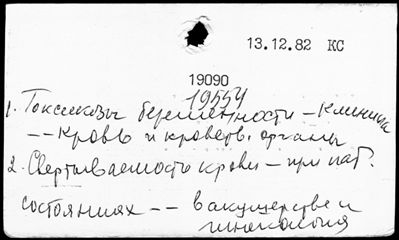 13.12.82 КС
19090
19554
1. Токсикозы беременности – Клиника
-- Кровь и кроветв. органы
2. Свертываемость крови – при пат.
состояниях -- в акушерстве и
гинекология